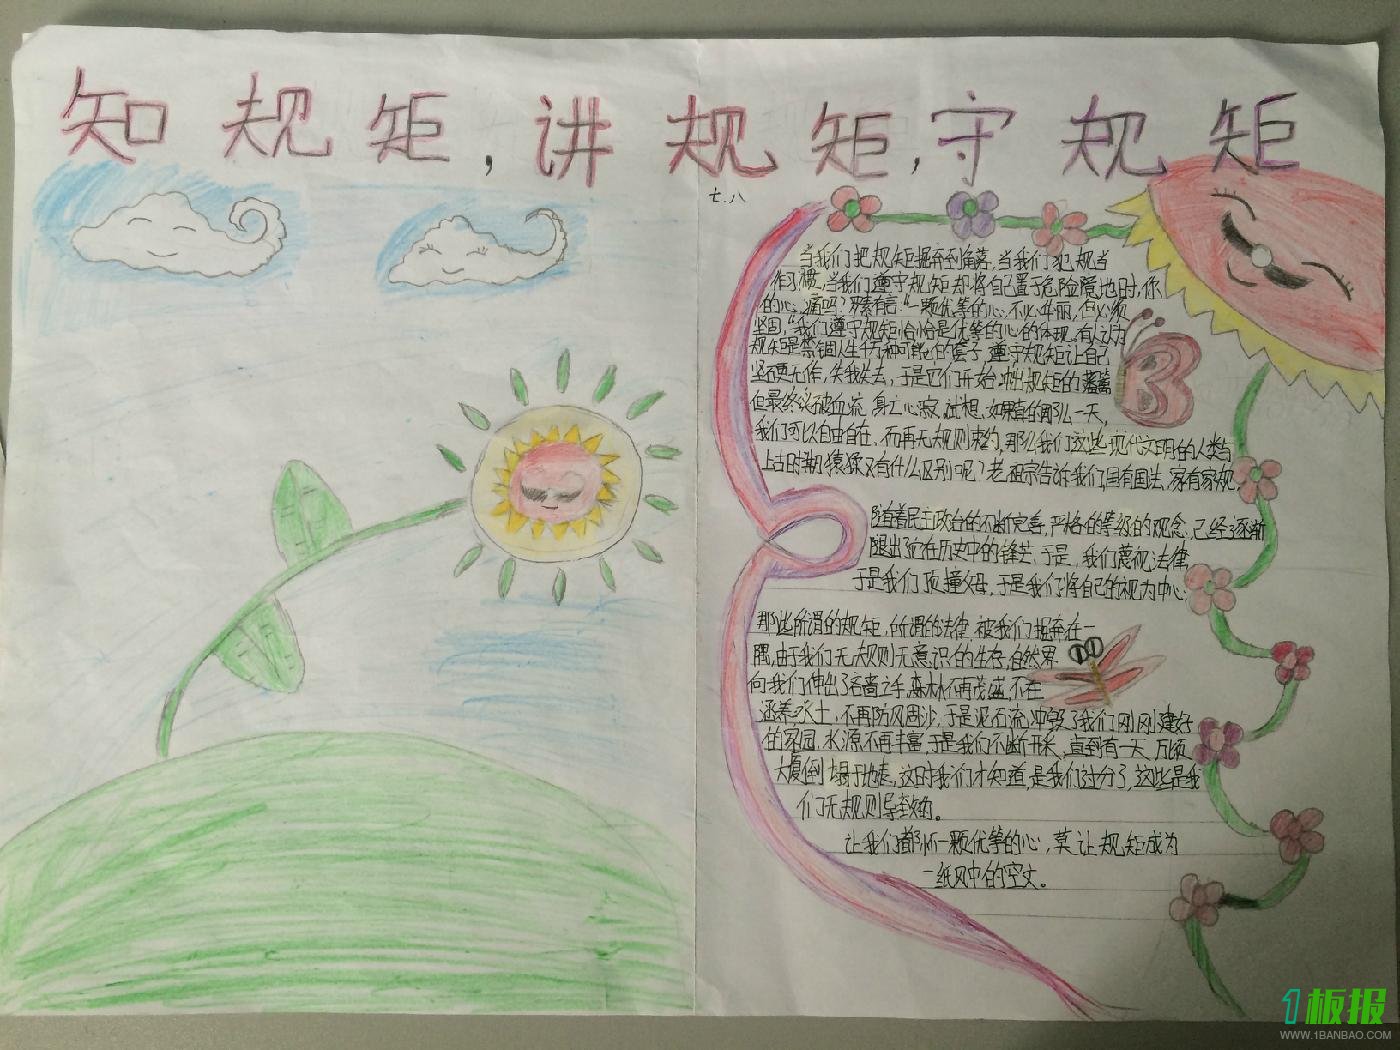 知规矩,讲规矩,守规矩
七.八
当我们把规矩摒弃到角落,当我们犯规当
作习惯,当我们遵守规矩却将自己置于危险境地时,你
的心,痛吗?罗素有言"一颗优等的心,不必华丽,但必须
坚固,"我们遵守规矩恰恰是优等的心的体现,有人认为
规矩是禁锢人生千万种可能的套子,遵守规矩让自己
于是它们开始 规矩的藩篱
但最终头破血流,身亡心寂,试想,如果真的那么一天,
我们可以自由自在,而再无规则束约,那么我们这些现代文明的人类与
上古时期猿猴又有什么区别呢?老祖宗告诉我们,国有国法,家有家规
随着民主政治的不断完善,严格的等级的观念,已经逐渐
退出了它在历史中的锋芒,于是,我们蔑视法律,
于是我们顶撞父母,于是我们将自己的视为中心
那些所谓的规矩,所谓的法律,被我们摒弃在一
隅,由于我们无规则无意识的生存,自然界
向我们伸出了 之手,森林不再茂盛,不在
涵养水土,不再防风固沙,于是泥石流冲毁了我们刚刚建好
的家园,水源不再丰富,于是我们不断开采,直到有一天,万顷
大厦倒塌于地表,这时我们才知道,是我们过分了,这些是我
们无规则导致的。
让我们都怀一颗优等的心,莫让规矩成为
一纸风中的空文。
1板报
WWW.1BANBAO.COM